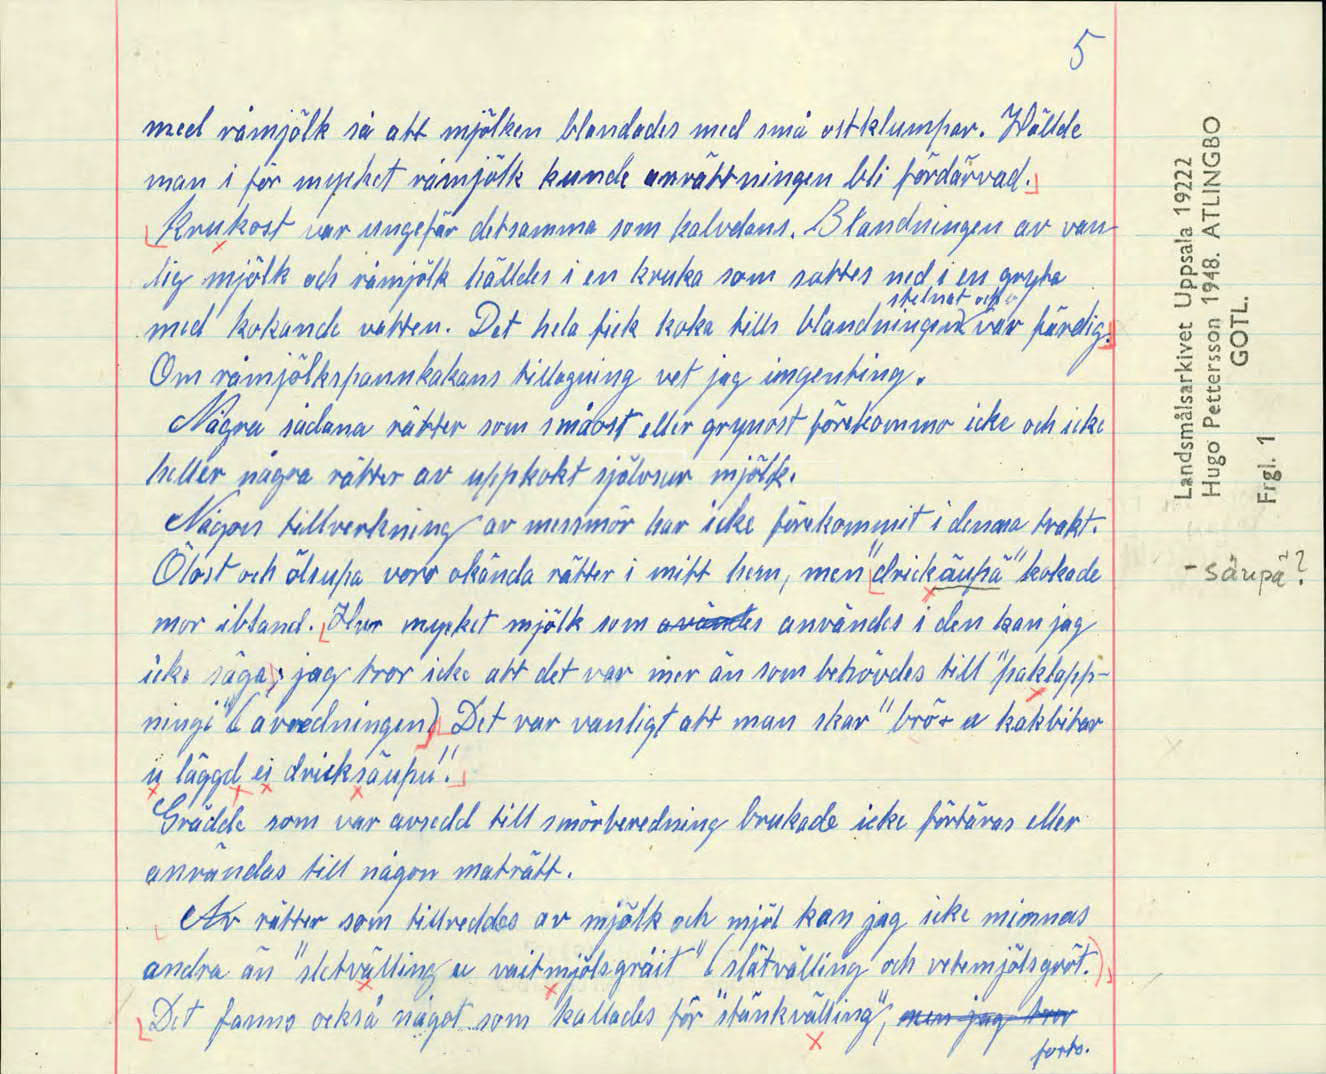 5
med råmjölk så att mjölken blandades med små ostklumpar. Hällde
man i för mycket råmjölk kunde anrättningen bli fördärvad.
Krukost var ungefär detsamma som kalvdans. Blandningen av van
lig mjölk och råmjölk hälldes i en kruka som sattes ned i en gryta
stelnat och
med kokande vatten. Det hela fick koka tills blandningen var färdig.
Om råmjölkspannkakans tillagning vet jag ingenting.
Några sådana rätter som småost eller grynost förekommo icke och icke
heller några rätter av uppkokt självsur mjölk.
Någon tillverkning av messmör har icke förekommit i denna trakt.
Ölost och ölsupa voro okända rätter i mitt hem, men "drickäupä" kokade
mor ibland. Hur mycket mjölk som användes användes i den kan jag
icke säga, jag tror icke att det var mer än som behövdes till "paktapp-
ningi" (avredningen) Det var vanligt att man skar "brö+ u kakbitar
u läggd ei dricksäupu".
Grädde som var avsedd till smörberedning brukade icke förtäras eller
användas till någon maträtt.
Av rätter som tillreddes av mjölk och mjöl kan jag icke minnas
andra än "sletvälling u vaitmjölsgräit" (slätvälling och vetemjölsgröt.)
Det fanns också något som kallades för "stänkvälling", men jag tror
forts.
Landsmålsarkivet Uppsala 19222
Hugo Pettersson 1948. ATLINGBO
GOTL.
Frgl. 1
- säupä?